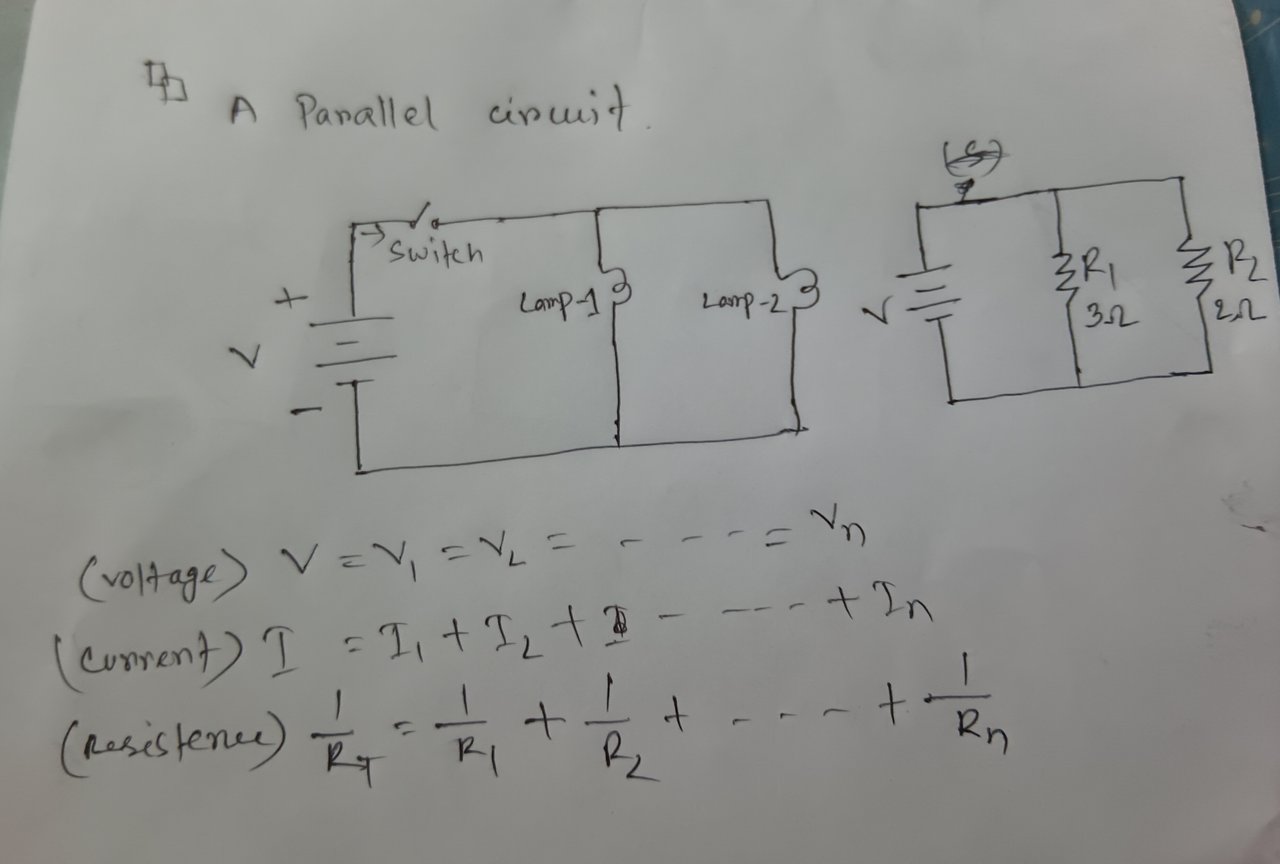 A Parallel circuit.
(S)
Switch
+
V
-
Lamp-1
Lamp-2
V
R1
3Ω
R2
2Ω
(voltage) V = V1 = V2 = - - - - = Vn
(current) I = I1 + I2 + I - - - - - + In
(resistence) 1/RT = 1/R1 + 1/R2 + - - - - + 1/Rn